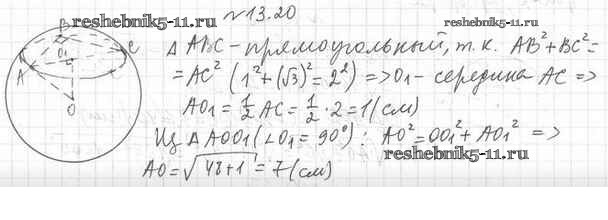 №13.20
reshebnik5-11.ru
reshebnik5-11.ru
B
O₁
C
K
A
O
Δ ABC - прямоугольный, т.к. AB²+BC²=
=AC² (1²+(√3)²=2²) => O₁ - середина AC =>
AO₁ = 1/2 AC = 1/2 · 2 = 1 (см)
Из Δ AOO₁ (∠O₁ = 90°): AO² = OO₁² + AO₁² =>
reshebnik5-11.ru
AO = √48+1 = 7 (см)
reshebnik5-11.ru